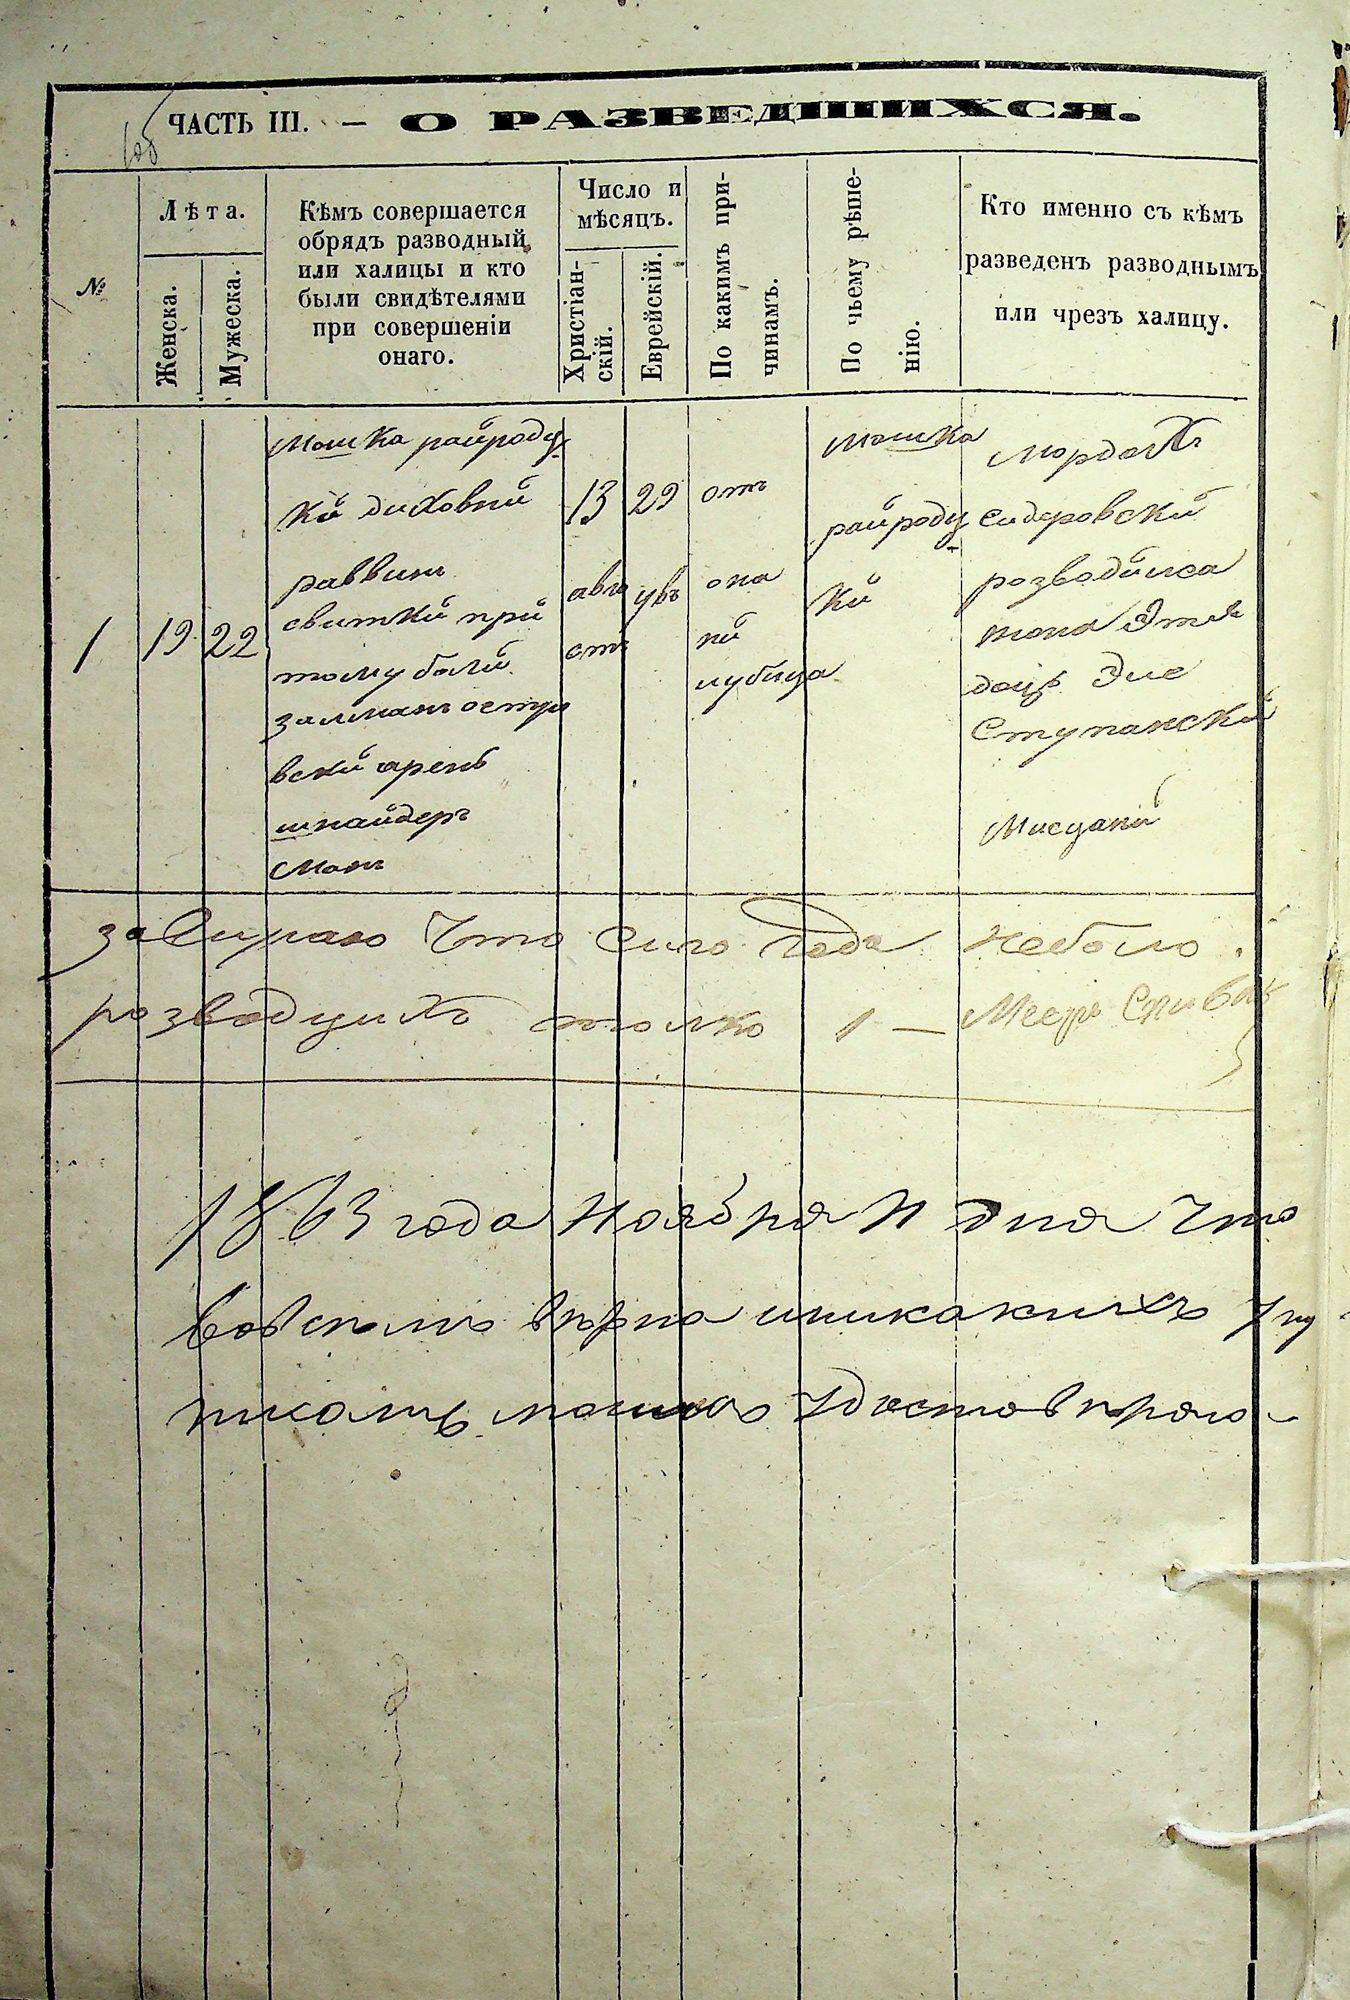 ЧАСТЬ III. — О РАЗВЕДШИХСЯ.
№
Лѣта.
Женска.
Мужеска.
Кѣмъ совершается
обрядъ разводный
или халицы и кто
были свидѣтелями
при совершеніи
онаго.
Число и
мѣсяцъ.
Христіан-
скій.
Еврейскій.
По какимъ при-
чинамъ.
По чьему рѣше-
нію.
Кто именно съ кѣмъ
разведенъ разводнымъ
или чрезъ халицу.
1
19
22
Мошка райродц
кй духовнй
раввин
свиткй прй
тому болй
залман остро
вскй
шнайдер
ман
13
авгу
ст
29
увъ
от
она
нй
Мошка
райродц
кй
Мордох
сидеровскй
розводился
жона
доц Эле
Ступанскй
что сего года неболо
розводцихъ толко 1 — Меер Спивак
1863 года Ноября 11 дня что
вѣрно иникакихъ упу